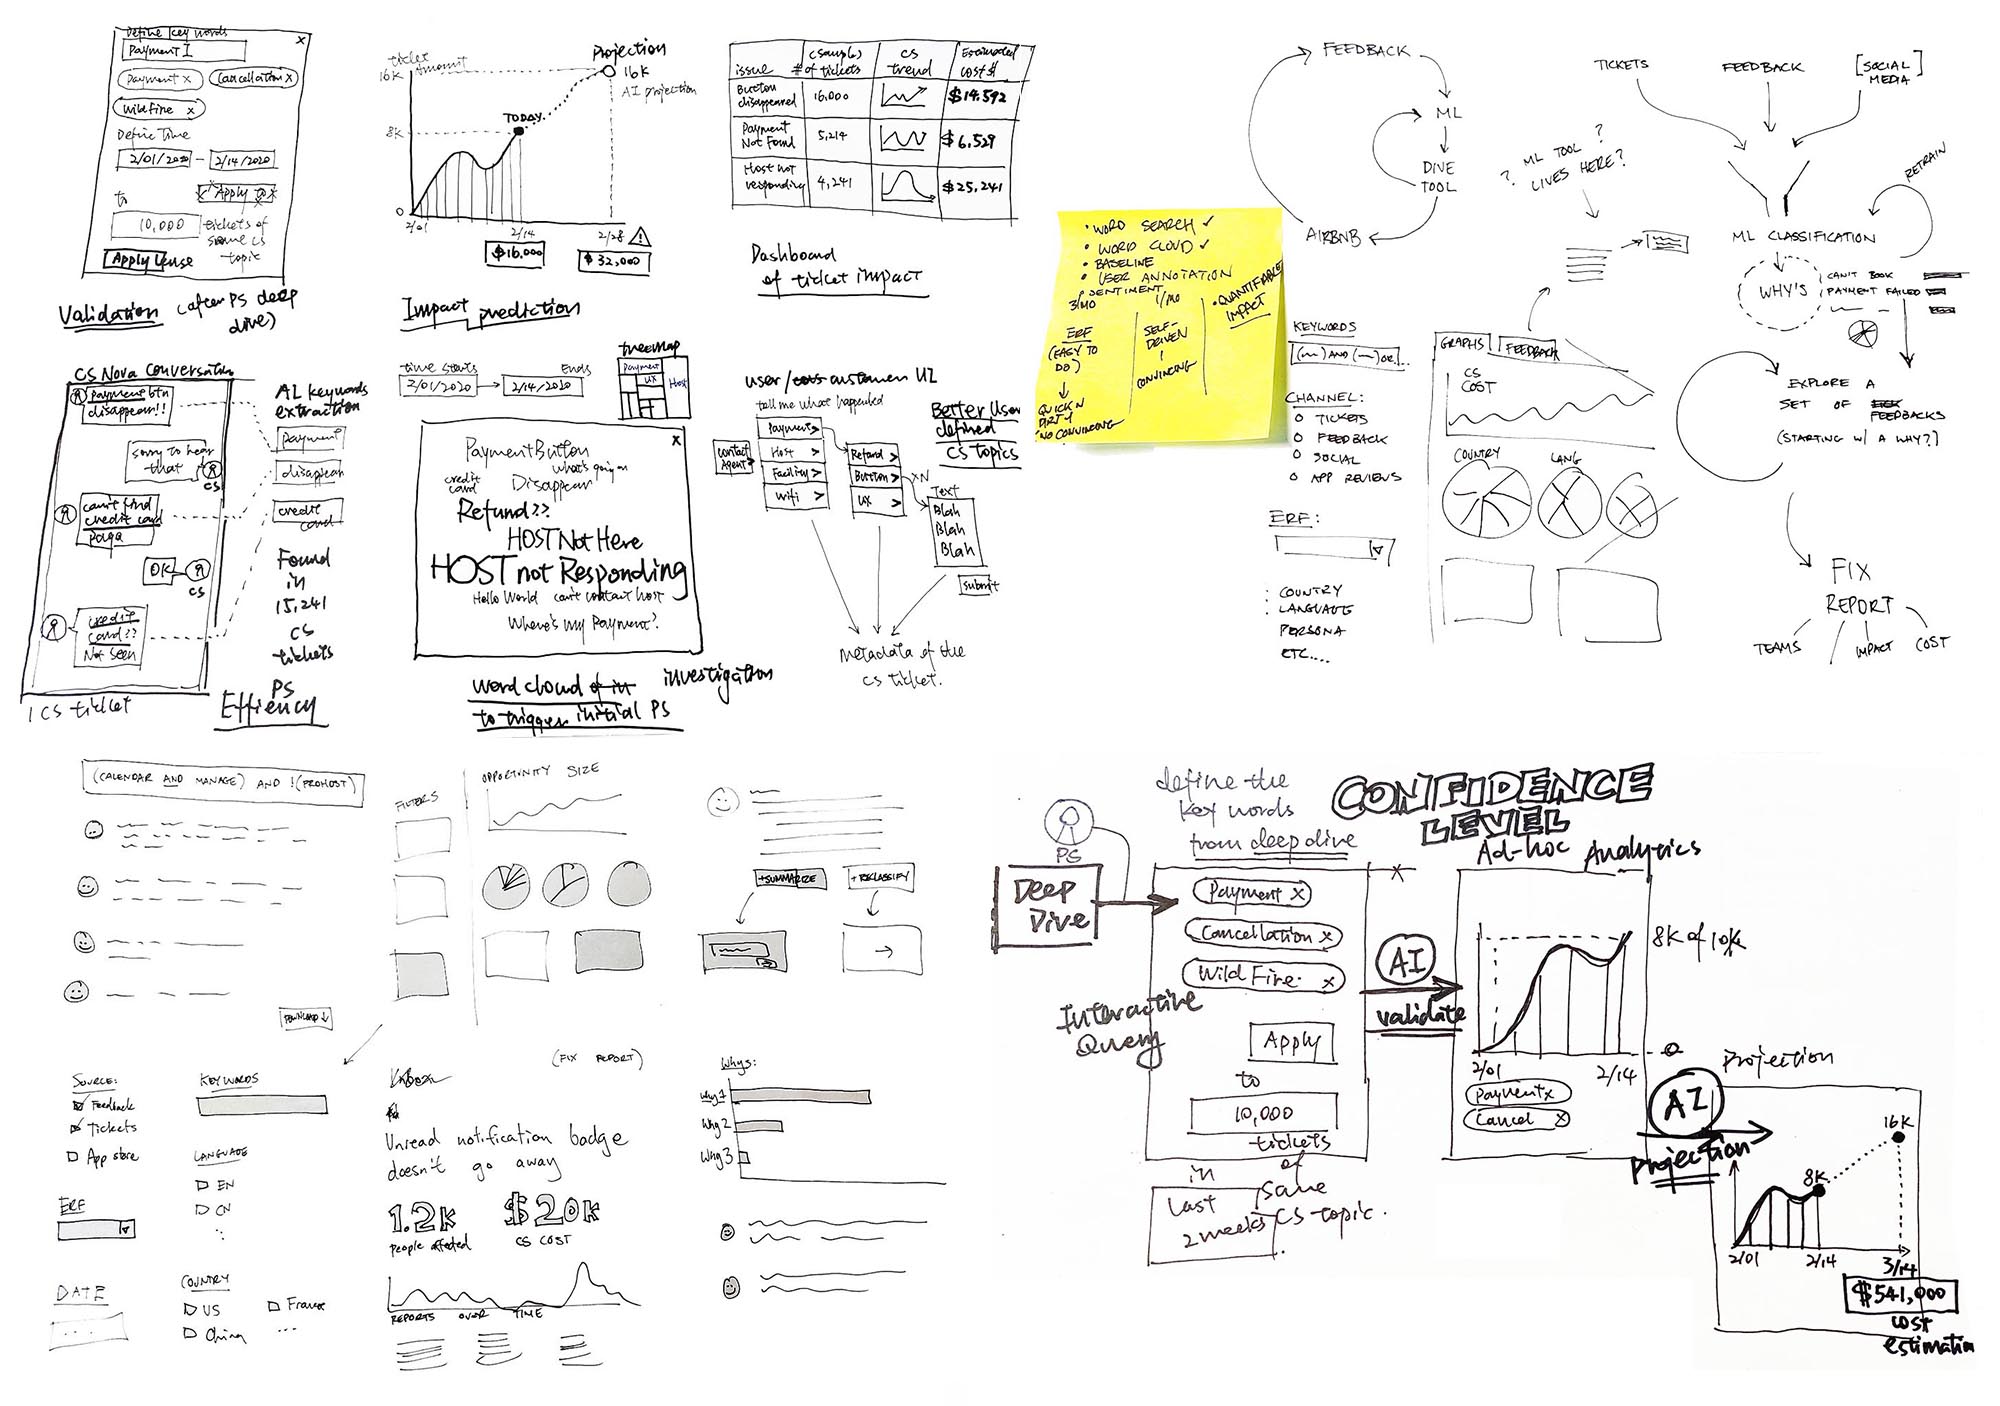 Define key words
Payment I
Payment x
Cancellation x
Wildfire x
Define Time
2/01/2020 - 2/14/2020
Apply
to
10,000
tickets of
same CS
topic
Apply
Validation (after PS deep
dive)
ticket
Amount
16K
8K
0
Projection
16K
AI projection
TODAY
2/01
2/14
2/28
$16,000
$32,000
Impact prediction
issue
# of tickets
CS
trend
Estimated
cost $
Button
disappeared
16,000
$14.592
Payment
Not Found
5,214
$6.529
Host not
responding
4,241
$25,241
Dashboard
of ticket impact
CS Nova Conversation
payment btn
disappear!!
sorry to hear
that
CS
can't find
credit card
OK
CS
credit
card??
Not seen
1 CS ticket
AI keywords
extraction
payment
disappear
credit
card
Found
in
15,241
CS
tickets
PS
Effiency
time starts
2/01/2020
Ends
2/14/2020
treemap
Payment
UX
Host
x
PaymentButton
what's going on
credit
card
Disappear
Refund??
HOST Not Here
HOST not Responding
Hello World
can't contact host
Where's my Payment?
word cloud of in investigation
to trigger initial PS
user/ customer UI
tell me what happened
Contact
Agent
Payment >
Host >
Facility >
wifi >
Refund >
Button >
UX >
xN
Text
Blah
Blah
Blah
submit
Better User
defined
CS topics
Metadata of the
CS ticket.
• WORD SEARCH ✓
• WORD CLOUD ✓
• BASELINE
• USER ANNOTATION
SENTIMENT
3/MO
1/MO
• QUANTIFIABLE
IMPACT
ERF
(EASY TO
DO)
SELF-
DRIVEN
CONVINCING
QUICK N
DIRTY
NO CONVINCING
FEEDBACK
ML
DIVE
TOOL
AIRBNB
? ML TOOL ?
? LIVES HERE?
TICKETS
FEEDBACK
[SOCIAL
MEDIA]
RETRAIN
ML CLASSIFICATION
WHY'S
CAN'T BOOK
PAYMENT FAILED
EXPLORE A
SET OF FEEDBACKS
(STARTING W/ A WHY?)
FIX
REPORT
TEAMS
IMPACT
COST
KEYWORDS
(~~) AND (~~) OR...
CHANNEL:
O TICKETS
O FEEDBACK
O SOCIAL
O APP REVIEWS
ERF:
: COUNTRY
: LANGUAGE
PERSONA
ETC....
GRAPHS
FEEDBACK
CS
COST
COUNTRY
LANG
(CALENDAR AND MANAGE) AND !(PROHOST)
DOWNLOAD ↓
FILTERS
OPPORTUNITY SIZE
+SUMMARIZE
+ RECLASSIFY
SOURCE:
Feedback
Tickets
App store
ERF
DATE
...
KEYWORDS
LANGUAGE
EN
CN
COUNTRY
US
China
France
...
(FIX REPORT)
Unread notification badge
doesn't go away
1.2K
people affected
$20K
CS COST
REPORTS OVER TIME
Whys:
Why 1
Why 2
Why 3
define the
key words
from deep dive
PS
Deep
Dive
Interactive
Query
Payment x
Cancellation x
Wild Fire. x
Apply
to
10,000
tickets
of
same
CS topic.
in
Last
2 weeks
CONFIDENCE
LEVEL
Ad-hoc Analytics
AI
validate
8K of 10K
2/01
2/14
Payment x
Cancel x
AI
projection
Projection
16K
8K
2/01
2/14
3/14
$541,000
cost
estimation